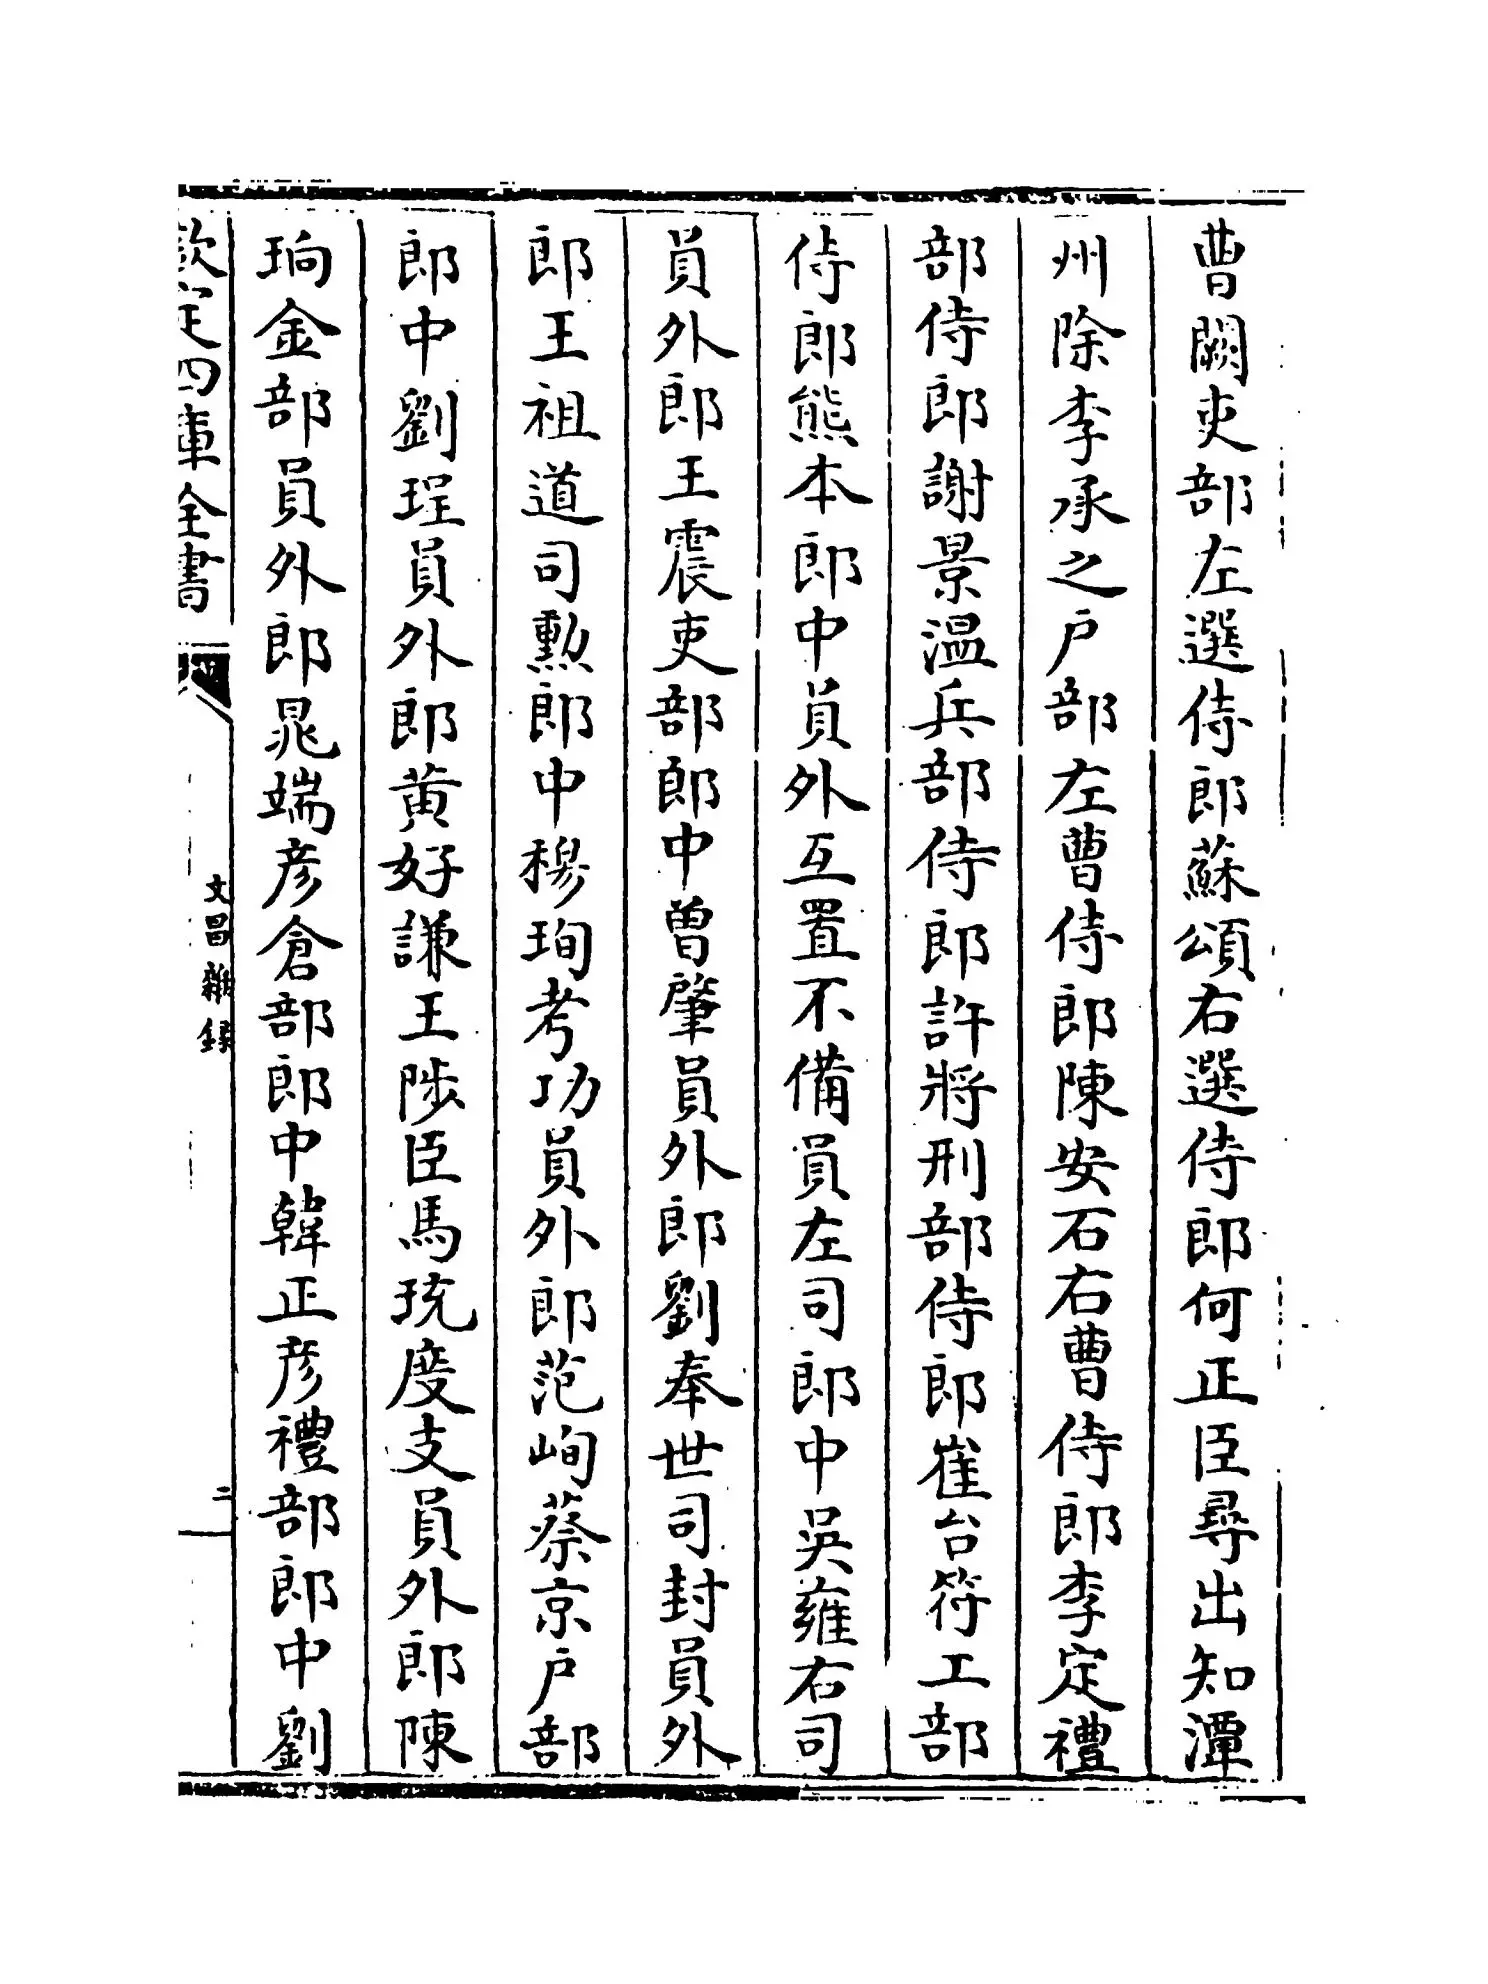 曹闕吏部左選侍郎蘇頌右選侍郎何正臣尋出知潭
州除李承之戶部左曹侍郎陳安石右曹侍郎李定禮
部侍郎謝景温兵部侍郎許將刑部侍郎崔台符工部
侍郎熊本郎中員外互置不備員左司郎中吳雍右司
員外郎王震吏部郎中曾肇員外郎劉奉世司封員外
郎王祖道司勲郎中穆珣考功員外郎范峋蔡京戶部
郎中劉珵員外郎黄好謙王陟臣馬珫度支員外郎陳
珦金部員外郎晁端彦倉部郎中韓正彦禮部郎中劉
欽定四庫全書
文昌雜錄
二